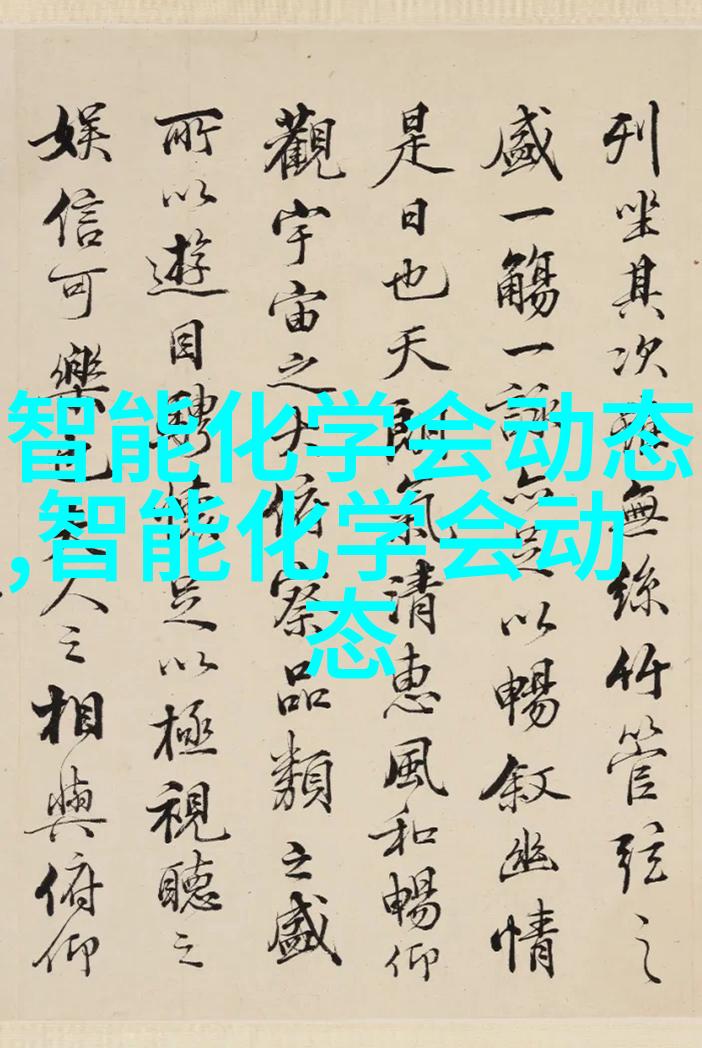 列坐其次雖無絲竹管弦之
盛一觴一詠亦足以暢敘幽情
是日也天朗氣清惠風和暢仰
觀宇宙之大俯察品類之盛
所以遊目騁懷足以極視聽之
娛信可樂也夫人之相與俯仰
智能化学会动态
,智能化学会动
态